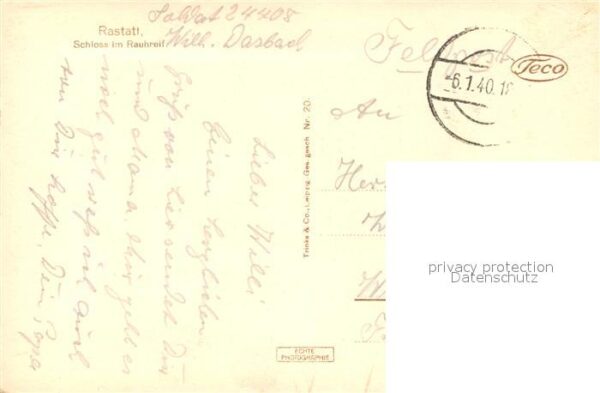 Soldat 24408
Rastatt,
Schloss im Rauhreif
Willi. Dasbach
Feldpost
Teco
-6.1.40.18
An
Lieber Willi
Einen herzlichen
Gruß von hier sendet Dir
und Mama. Mir geht es
noch gut was ich auch
von Dir hoffe. Dein Papa
Trinks & Co., Leipzig. Ges. gesch. Nr. 20.
ECHTE
PHOTOGRAPHIE
privacy protection
Datenschutz